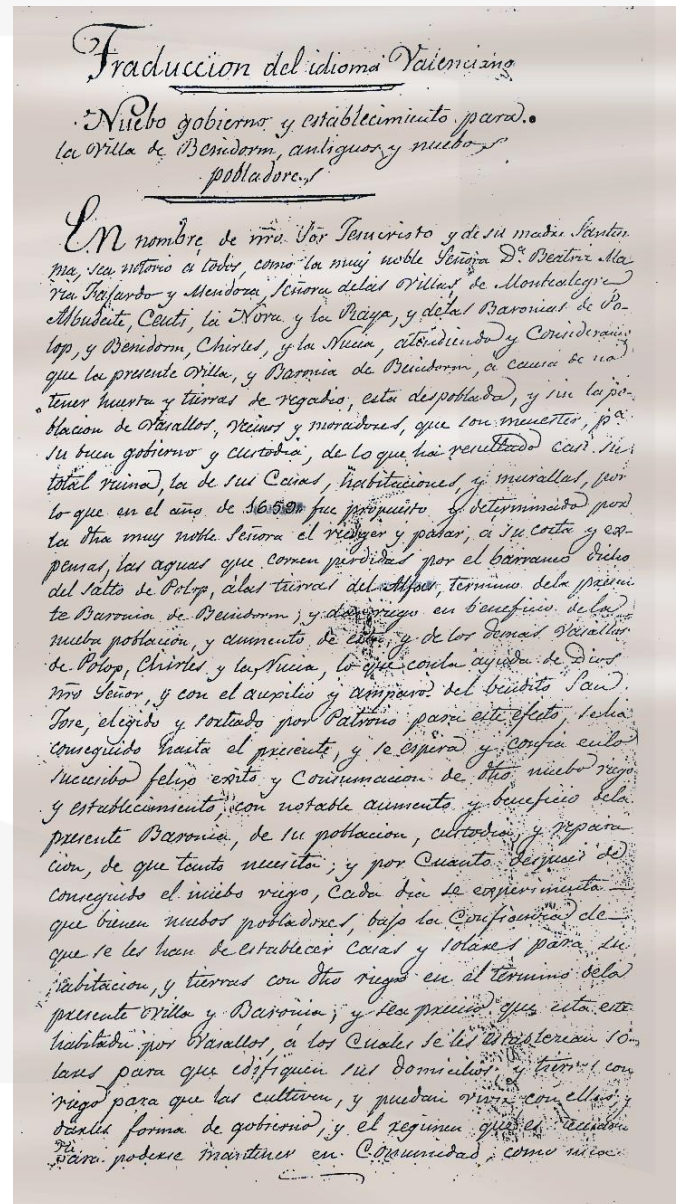 Traduccion del idioma Valenciano
Nuebo gobierno y establecimiento para
la Villa de Benidorm, antiguos y nuebos
pobladores
En nombre de nro Sor Jesucristo y de su madre Santisi
ma, sea notorio á todos, como la muy noble Señora Da. Beatriz Ma
ria Fajardo y Mendoza, Señora delas Villas de Montealegre
Albudeite, Ceuti, la Ñora y la Raya, y delas Baronias de Po-
lop, y Benidorm, Chirles, y la Nucia, atendiendo y Considerando
que la presente Villa, y Baronia de Benidorm, a causa de no
tener huerta y tierras de regadio, está despoblada, y sin la po-
blacion de Vasallos, Vecinos y moradores, que son menester, pa.
su buen gobierno y custodia, de lo que ha resultado casi su
total ruina, la de sus Casas, habitaciones, y murallas, por
lo que en el año de 1659 fue propuesto y determinado por
la dha muy noble Señora el recojer y pasar, a su costa y ex-
pensas, las aguas que corren perdidas por el barranco dicho
del salto de Polop, álas tierras del Alfas, termino dela presen
te Baronia de Benidorm; y dar riego en beneficio de la
nueba poblacion, y aumento de esta, y de los demas Vasallos
de Polop, Chirles y la Nucia, lo que conla ayuda de Dios
nro Señor, y con el auxilio y amparo del bendito San
Jose, elegido y sorteado por Patrono para este efeto, se ha
conseguido hasta el presente, y se espera y confia enlo
succesibo felix exito y Consumacion de dho nuebo riego
y establecimiento, con notable aumento y beneficio dela
presente Baronia, de su poblacion, custodia, y repara
cion, de que tanto necesita; y por Cuanto despues de
conseguido el nuebo riego, Cada dia se experimenta
que bienen nuebos pobladores, bajo la Confianza de
que se les han de establecer Casas y solares para su
habitacion, y tierras con dho riego en el termino dela
presente Villa y Baronia; y sea preciso que esta esté
habitada por Vasallos, á los Cuales se les establezcan so-
lares para que edifiquen sus domicilios y tierras con
riego para que las cultiven, y puedan vivir con ellas y
darles forma de gobierno, y el regimen que es
para poderse mantener en Comunidad, como